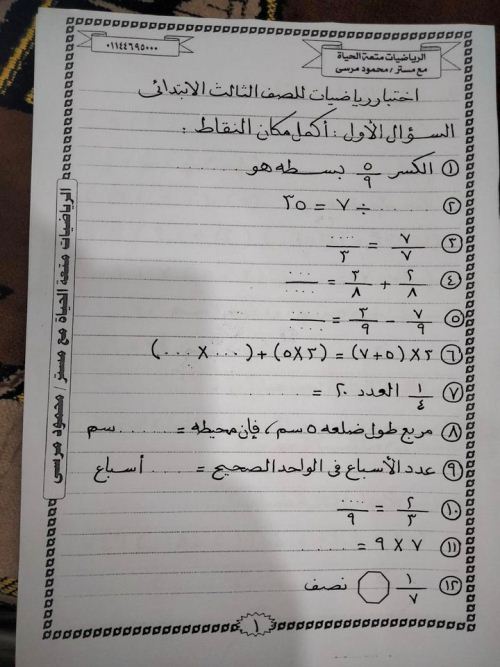 الرياضيات متعة الحياة
مع مستر / محمود مرسى
٠١١٤٤٦٩٥٠٠٠
اختبار رياضيات للصف الثالث الابتدائى
السؤال الأول : أكمل مكان النقاط :
١ الكسر ٥/٩ بسطه هو ..........
٢ .......... ÷ ٧ = ٣٥
٣ ٧/٧ = ..../٣
٤ ٢/٨ + ٣/٨ = ..../
٥ ٧/٩ - ٣/٩ = ..../
٦ ٣ × (٥ + ٧) = (٣ × ٥) + (... × ...)
٧ ١/٤ العدد ٢٠ = ..........
٨ مربع طول ضلعه ٥ سم ، فإن محيطه = ........ سم
٩ عدد الأسباع فى الواحد الصحيح = ........ أسباع
١٠ ٢/٣ = ..../٩
١١ ٧ × ٩ = ..........
١٢ ١/٧ نصف
١
الرياضيات متعة الحياة مع مستر / محمود مرسى